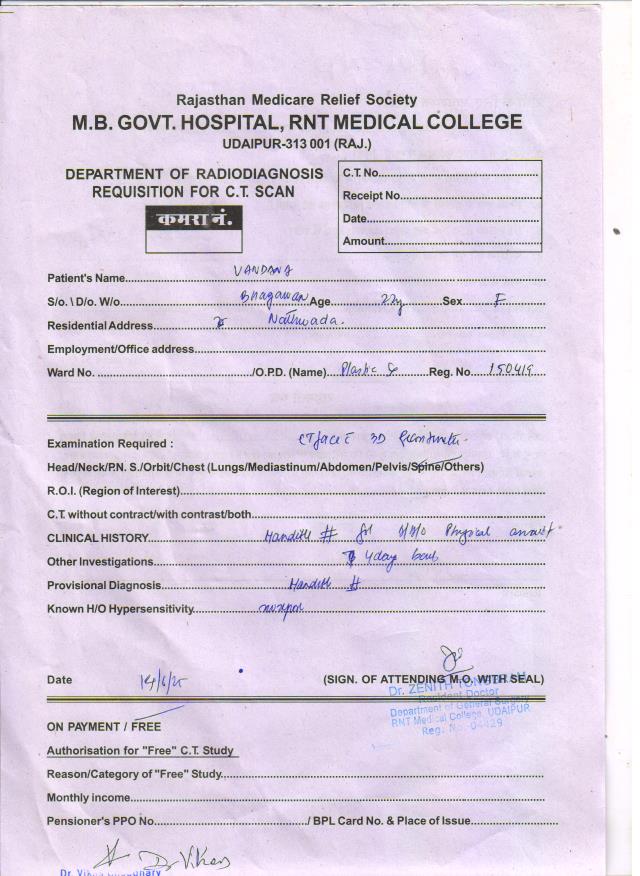 Rajasthan Medicare Relief Society
M.B. GOVT. HOSPITAL, RNT MEDICAL COLLEGE
UDAIPUR-313 001 (RAJ.)
DEPARTMENT OF RADIODIAGNOSIS
REQUISITION FOR C.T. SCAN
कमरा नं.
C.T. No.
Receipt No.
Date
Amount
Patient's Name VANDANA
S/o. \ D/o. W/o Bhagawan Age 22y Sex F
Residential Address Nathwada.
Employment/Office address
Ward No. /O.P.D. (Name) Plastic Reg. No. 150419
Examination Required : CT face 3D
Head/Neck/P.N. S./Orbit/Chest (Lungs/Mediastinum/Abdomen/Pelvis/Spine/Others)
R.O.I. (Region of Interest)
C.T. without contract/with contrast/both
CLINICAL HISTORY # Physical
Other Investigations 4 days back
Provisional Diagnosis #
Known H/O Hypersensitivity
Date 14/6/25 (SIGN. OF ATTENDING M.O. WITH SEAL)
Dr. ZENITH
Resident Doctor
Department of General Surgery
RNT Medical College, UDAIPUR
Reg. No.-04429
ON PAYMENT / FREE
Authorisation for "Free" C.T. Study
Reason/Category of "Free" Study
Monthly income
Pensioner's PPO No. / BPL Card No. & Place of Issue
Dr Vikas